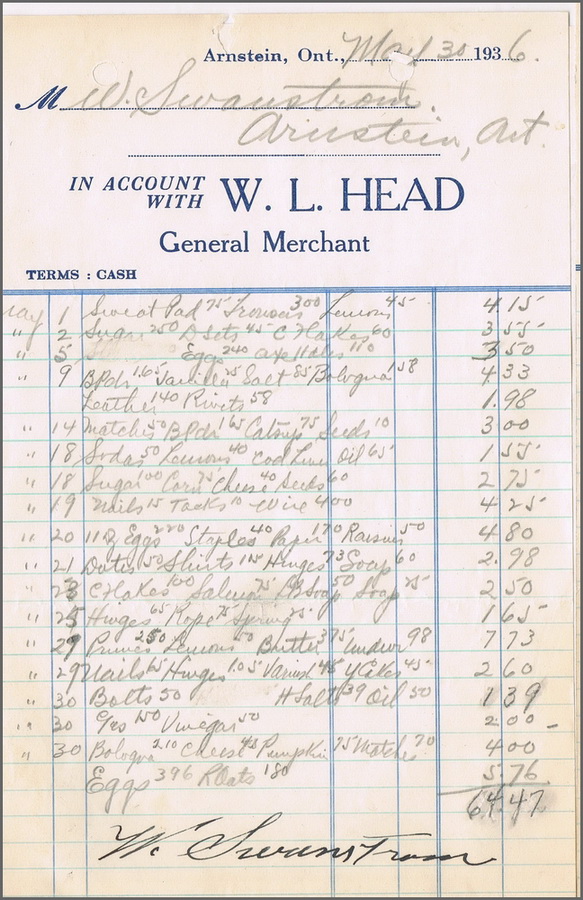 Arnstein, Ont., May 30 1936.
M W. Swanstrom.
Arnstein, Ont.
IN ACCOUNT
WITH W. L. HEAD
General Merchant
TERMS : CASH
May 1 Sweat Pad 75 Trousers 300 Lemons 45 4.15
" 2 Sugar 250 D Sets 45 C Flakes 60 3 55
" 5 Eggs 240 110 3 50
" 9 B Pdr 1.65 Vanilla 25 Salt 85 Bologna 158 4 33
Leather 140 Rivets 58 1.98
" 14 Matches 50 B Pdr 165 Catsup 75 Seeds 10 3 00
" 18 Sodas 50 Lemons 40 Cod Liver Oil 65 1 55
" 18 Sugar 100 Corn 75 Cheese 40 Seeds 60 2 75
" 19 Nails 15 Tacks 10 Wire 400 4 25
" 20 11 Eggs 220 Staples 40 Paper 170 Raisins 50 4 80
" 21 Dates 50 Shirts 115 Hinges 73 Soap 60 2.98
" 23 C Flakes 100 Salmon 75 Soap 50 Soap 25 2 50
" 25 Hinges 65 Rope 75 Spring 25 1 65
" 29 Prunes 250 Lemons 50 Butter 375 98 7 73
" 29 Nails 65 Hinges 1.05 Varnish 45 Y Cakes 45 2 60
" 30 Bolts 50 H Salts 39 Oil 50 1 39
" 30 150 Vinegar 50 2 00
" 30 Bologna 210 Cheese 45 Pumpkin 75 Matches 70 4 00
Eggs 396 R Oats 180 5.76
64.47
W. Swanstrom